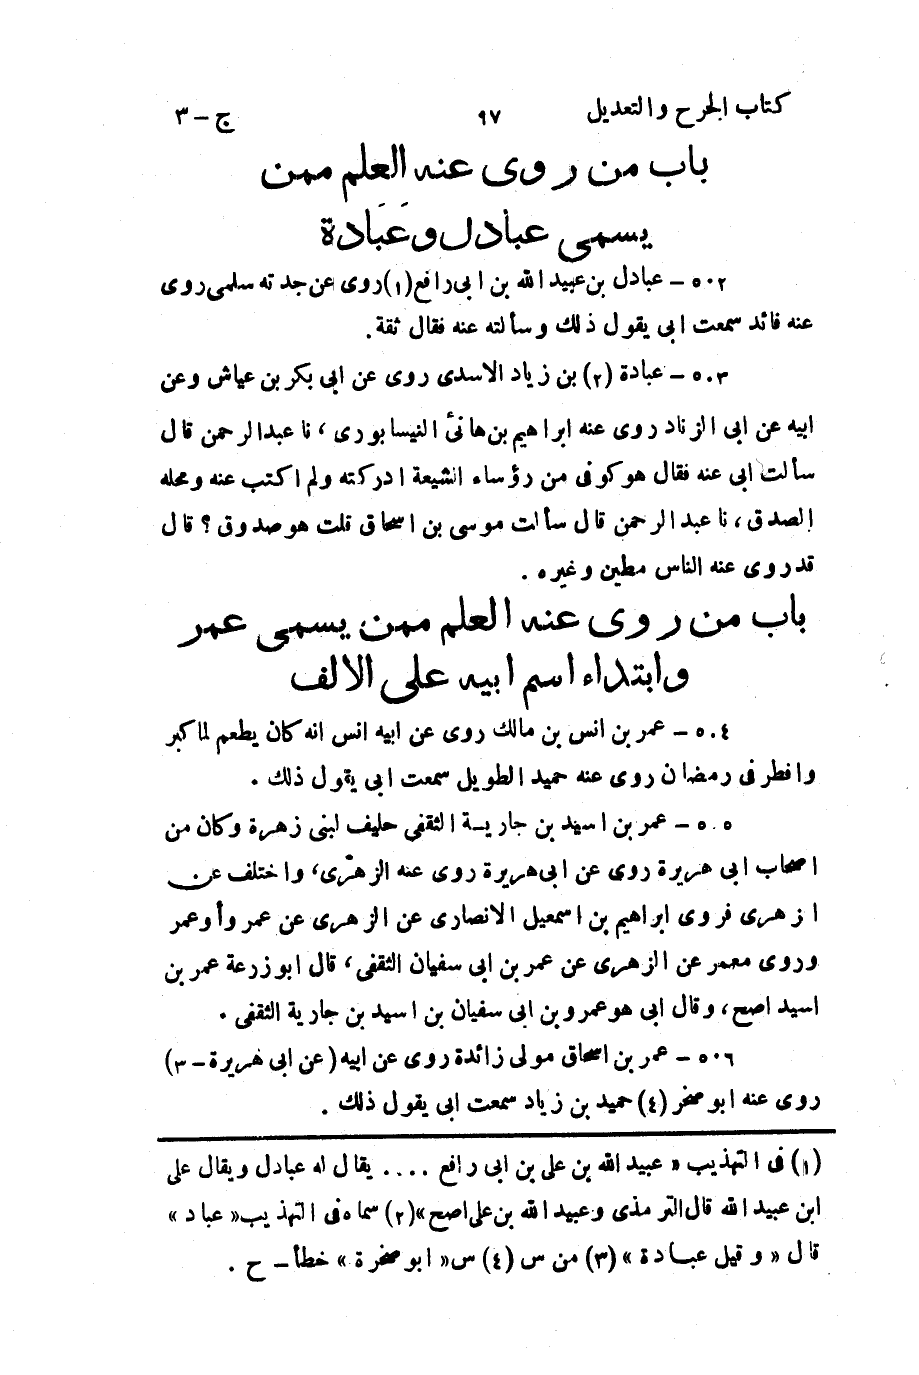 كتاب الجرح والتعديل ٩٧ ج - ٣
باب من روى عنه العلم ممن
يسمى عبادل وعَبَادة
٥٠٢ - عبادل بن عبيد الله بن ابى رافع (١) روى عن جدته سلمى روى
عنه فائد سمعت ابى يقول ذلك وسألته عنه فقال ثقة.
٥٠٣ - عبادة (٢) بن زياد الاسدى روى عن ابى بكر بن عياش وعن
ابيه عن ابى الزناد روى عنه ابراهيم بن هانئ النيسابورى، نا عبد الرحمن قال
سألت ابى عنه فقال هو كوفى من رؤساء الشيعة ادركته ولم اكتب عنه ومحله
الصدق، نا عبد الرحمن قال سألت موسى بن اسحاق قلت هو صدوق؟ قال
قد روى عنه الناس مطين وغيره.
باب من روى عنه العلم ممن يسمى عمر
وابتداء اسم ابيه على الالف
٥٠٤ - عمر بن انس بن مالك روى عن ابيه انس انه كان يطعم لما كبر
وافطر فى رمضان روى عنه حميد الطويل سمعت ابى يقول ذلك.
٥٠٥ - عمر بن اسيد بن جارية الثقفى حليف لبنى زهرة وكان من
اصحاب ابى هريرة روى عن ابى هريرة روى عنه الزهرى، واختلف عن
ازهرى فروى ابراهيم بن اسمعيل الانصارى عن الزهرى عن عمر وأوعمر
وروى معمر عن الزهرى عن عمر بن ابى سفيان الثقفى، قال ابو زرعة عمر بن
اسيد اصح، وقال ابى هو عمرو بن ابى سفيان بن اسيد بن جارية الثقفى.
٥٠٦ - عمر بن اسحاق مولى زائدة روى عن ابيه (عن ابى هريرة - ٣)
روى عنه ابو صخر (٤) حميد بن زياد سمعت ابى يقول ذلك.
(١) فى التهذيب « عبيد الله بن على بن ابى رافع .... يقال له عبادل ويقال على
ابن عبيد الله قال الترمذى وعبيد الله بن على اصح» (٢) سماه فى التهذيب « عباد »
قال « وقيل عبادة » (٣) من س (٤) س « ابو صخرة » خطأ - ح.